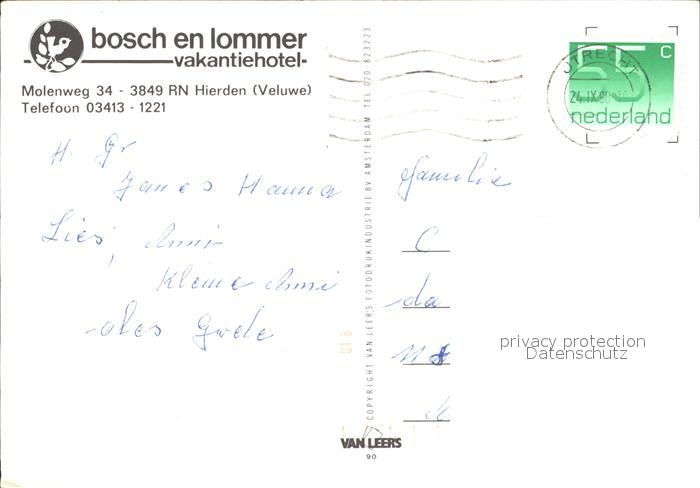 bosch en lommer
vakantiehotel
Molenweg 34 - 3849 RN Hierden (Veluwe)
Telefoon 03413 - 1221
H. Gr
James Hanna
Lies, Anni
Kleine Anni
alles Goede
COPYRIGHT VAN LEER'S FOTODRUKINDUSTRIE BV AMSTERDAM TEL 020-823223
VAN LEER'S
90
UTRECHT
24.IX.80
55 C
nederland
familie
C
da
privacy protection
Datenschutz